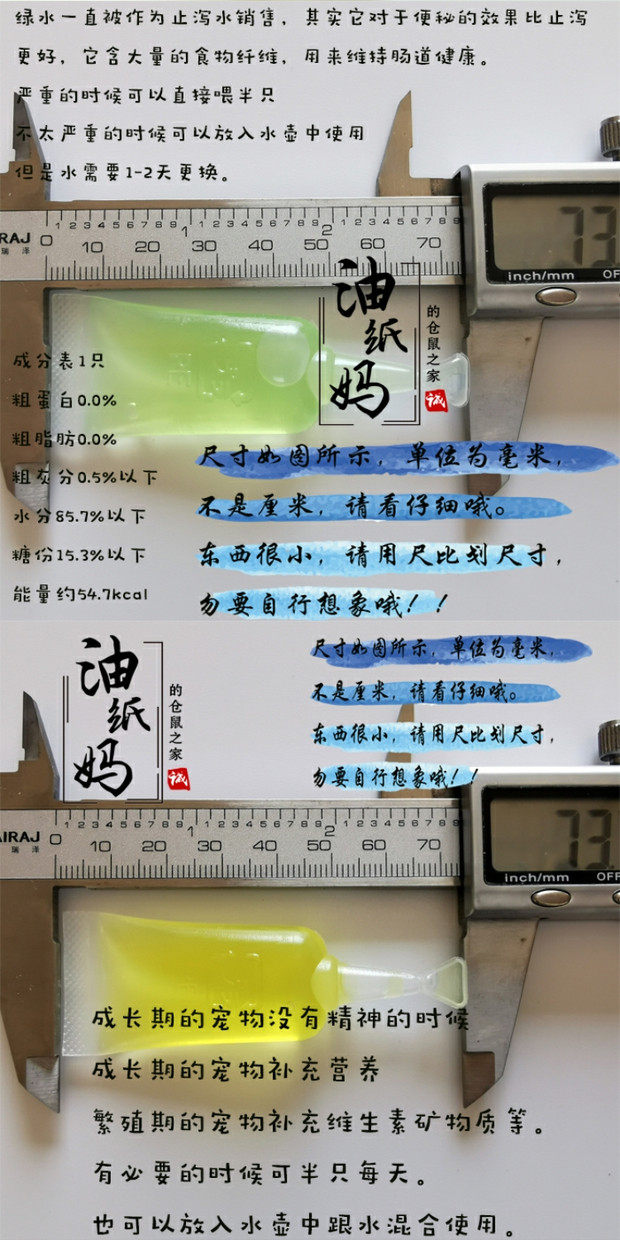 绿水一直被作为止泻水销售，其实它对于便秘的效果比止泻
更好，它含大量的食物纤维，用来维持肠道健康。
严重的时候可以直接喂半只
不太严重的时候可以放入水壶中使用
但是水需要1-2天更换。
RAJ
瑞泽
1 2 3 4 5 6 7 8 9 1 1 2 3 4 5 6 7 8 9 2 1 2 3 4 5 6 7 8 9
0 10 20 30 40 50 60 70
73
inch/mm
OF
油纸妈
的仓鼠之家
诚
成分表1只
粗蛋白0.0%
粗脂肪0.0%
粗灰分0.5%以下
水分85.7%以下
糖份15.3%以下
能量约54.7kcal
尺寸如图所示，单位为毫米，
不是厘米，请看仔细哦。
东西很小，请用尺比划尺寸，
勿要自行想象哦！！
油纸妈
的仓鼠之家
诚
尺寸如图所示，单位为毫米，
不是厘米，请看仔细哦。
东西很小，请用尺比划尺寸，
勿要自行想象哦！！
AIRAJ
瑞泽
1 2 3 4 5 6 7 8 9 1 1 2 3 4 5 6 7 8 9 2 1 2 3 4 5 6 7 8 9
0 10 20 30 40 50 60 70
73
inch/mm
OFF
成长期的宠物没有精神的时候
成长期的宠物补充营养
繁殖期的宠物补充维生素矿物质等。
有必要的时候可半只每天。
也可以放入水壶中跟水混合使用。